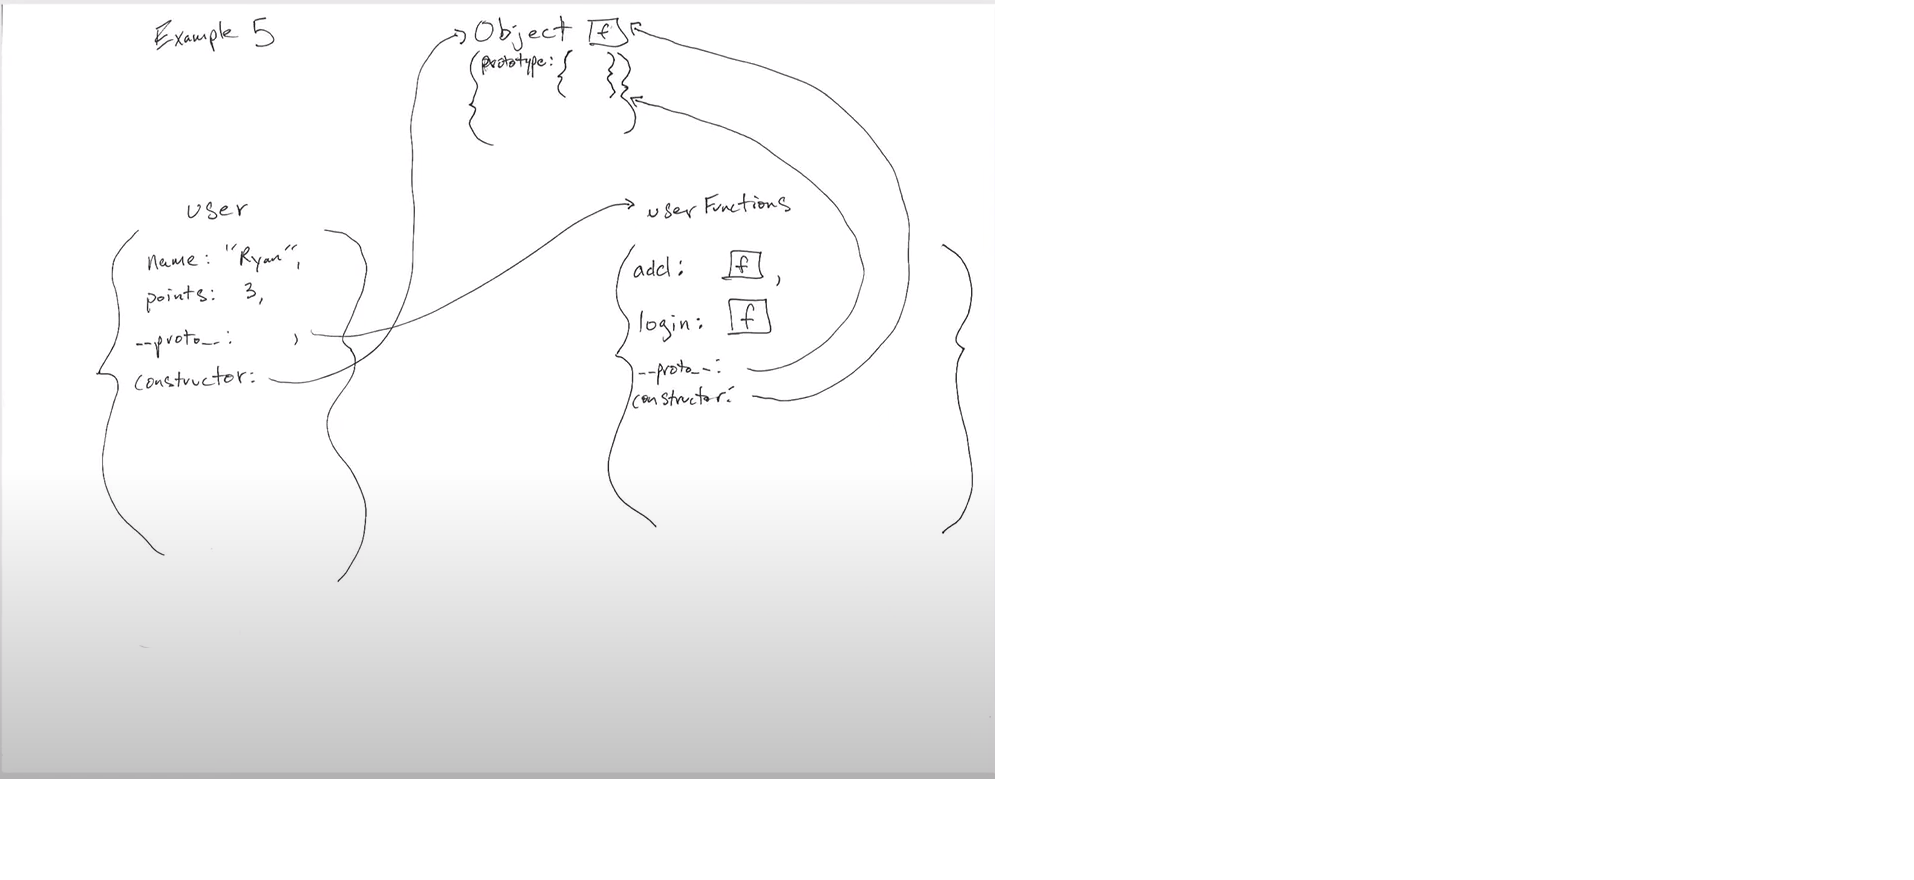 Example 5
Object f
{prototype: { }}
}
user
{ name: "Ryan",
points: 3,
--proto_:        ,
constructor:
}
userFunctions
{ add: f ,
login: f
--proto_-:
constructor:
}